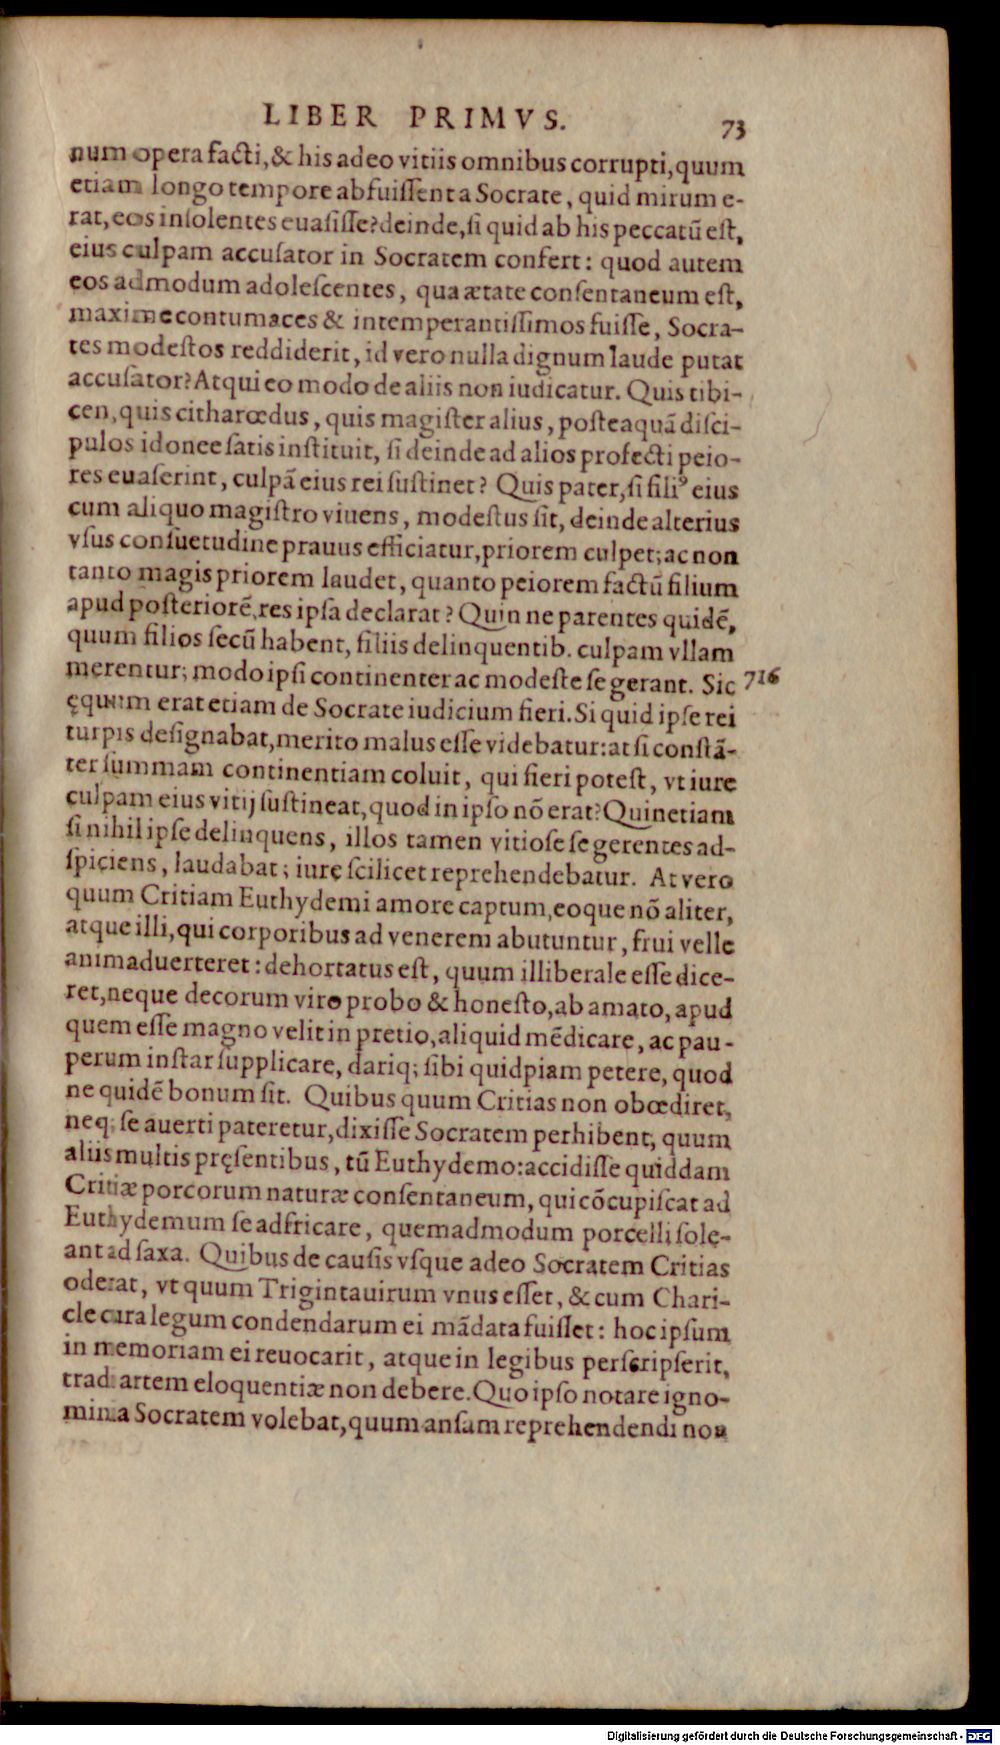 LIBER PRIMVS.
73
num opera facti, & his adeo vitiis omnibus corrupti, quum
etiam longo tempore abfuiſſent a Socrate, quid mirum e-
rat, eos inſolentes euaſiſſe? deinde, ſi quid ab his peccatū eſt,
eius culpam accuſator in Socratem confert: quod autem
eos admodum adoleſcentes, qua ætate conſentaneum eſt,
maxime contumaces & intemperantiſſimos fuiſſe, Socra-
tes modeſtos reddiderit, id vero nulla dignum laude putat
accuſator? Atqui eo modo de aliis non iudicatur. Quis tibi-
cen, quis citharœdus, quis magiſter alius, poſteaquā diſci-
pulos idonee ſatis inſtituit, ſi deinde ad alios profecti peio-
res euaſerint, culpā eius rei ſuſtinet? Quis pater, ſi filiꝰ eius
cum aliquo magiſtro viuens, modeſtus ſit, deinde alterius
vſus conſuetudine prauus efficiatur, priorem culpet; ac non
tanto magis priorem laudet, quanto peiorem factū filium
apud poſteriorē, res ipſa declarat? Quin ne parentes quidē,
quum filios ſecū habent, filiis delinquentib. culpam vllam
merentur; modo ipſi continenter ac modeſte ſe gerant. Sic 716
ęquum erat etiam de Socrate iudicium fieri. Si quid ipſe rei
turpis deſignabat, merito malus eſſe videbatur: at ſi conſtā-
ter ſummam continentiam coluit, qui fieri poteſt, vt iure
culpam eius vitij ſuſtineat, quod in ipſo nō erat? Quinetiam
ſi nihil ipſe delinquens, illos tamen vitioſe ſe gerentes ad-
ſpiciens, laudabat; iure ſcilicet reprehendebatur. At vero
quum Critiam Euthydemi amore captum, eoque nō aliter,
atque illi, qui corporibus ad venerem abutuntur, frui velle
animaduerteret: dehortatus eſt, quum illiberale eſſe dice-
ret, neque decorum viro probo & honeſto, ab amato, apud
quem eſſe magno velit in pretio, aliquid mēdicare, ac pau-
perum inſtar ſupplicare, dariq; ſibi quidpiam petere, quod
ne quidē bonum ſit. Quibus quum Critias non obœdiret,
neq; ſe auerti pateretur, dixiſſe Socratem perhibent, quum
aliis multis pręſentibus, tū Euthydemo: accidiſſe quiddam
Critiæ porcorum naturæ conſentaneum, qui cōcupiſcat ad
Euthydemum ſe adfricare, quemadmodum porcelli ſole-
ant ad ſaxa. Quibus de cauſis vſque adeo Socratem Critias
oderat, vt quum Trigintauirum vnus eſſet, & cum Chari-
cle cura legum condendarum ei mādata fuiſſet: hoc ipſum
in memoriam ei reuocarit, atque in legibus perſcripſerit,
tradi artem eloquentiæ non debere. Quo ipſo notare igno-
minia Socratem volebat, quum anſam reprehendendi non
Digitalisierung gefördert durch die Deutsche Forschungsgemeinschaft - DFG